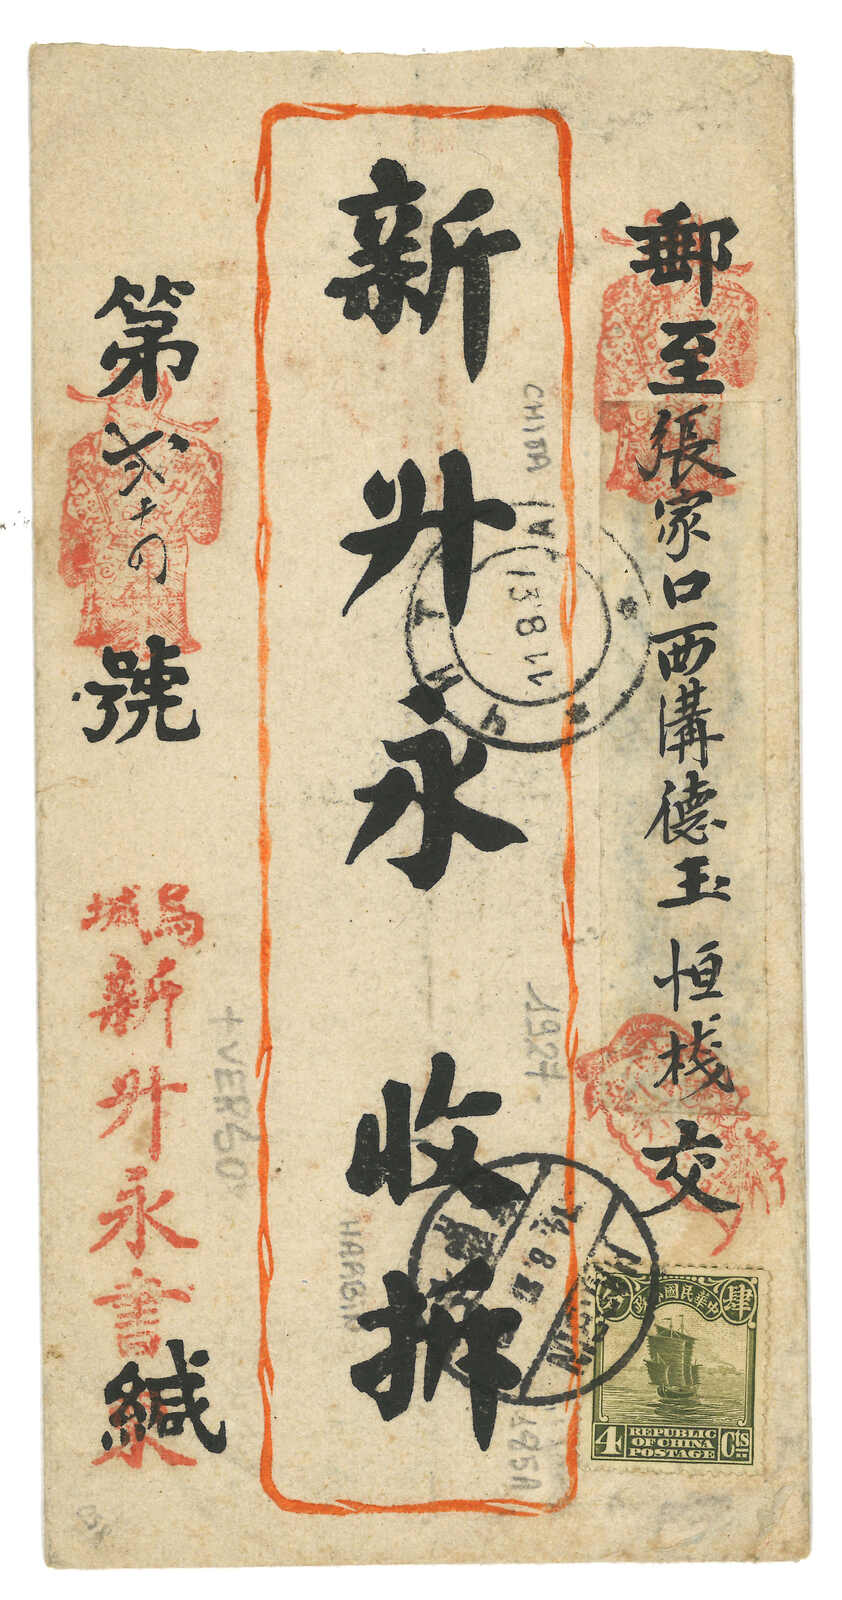 郵至張家口西溝德玉恒栈交
新升永收拆
第弍十四號
烏城
新升永書柬
緘
CHITA
13.8.
1927.
HARBIN
+ VERSO
肆
中華民國郵政
分
4
REPUBLIC
OF CHINA
POSTAGE
Cts